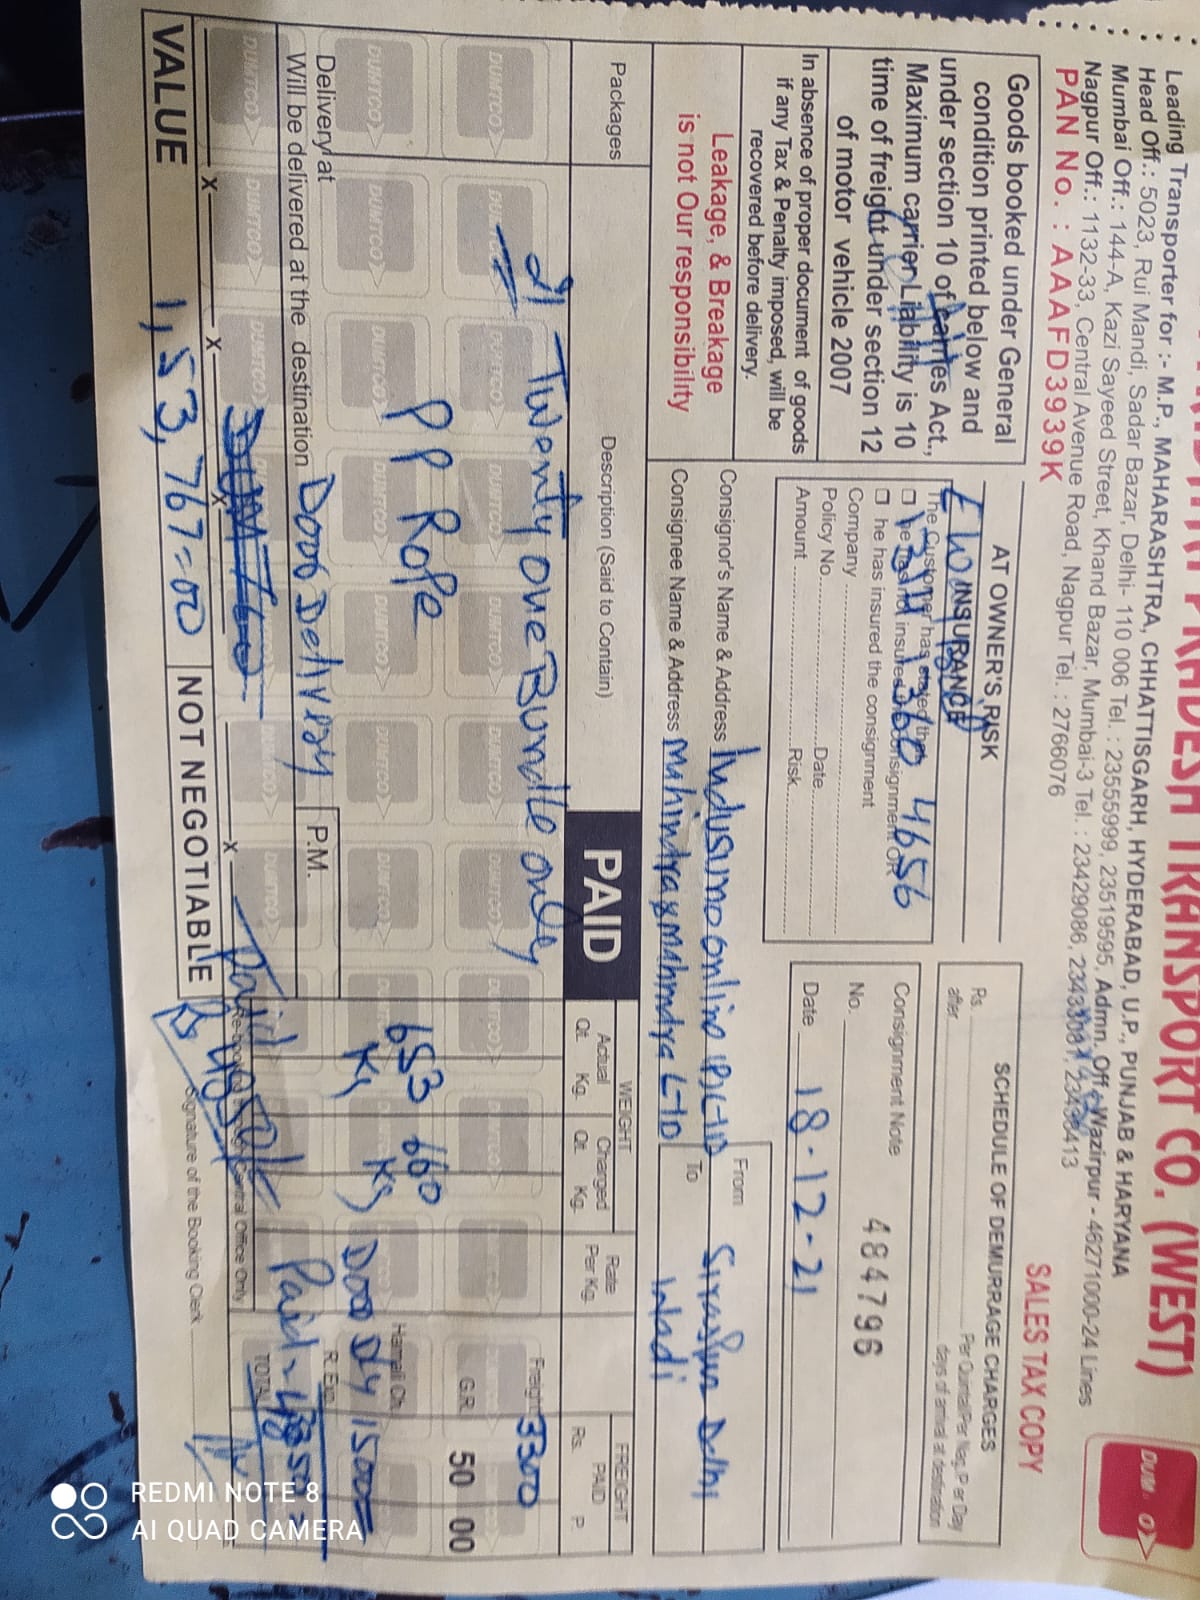 PRADESH TRANSPORT CO. (WEST)
Leading Transporter for :- M.P., MAHARASHTRA, CHHATTISGARH, HYDERABAD, U.P., PUNJAB & HARYANA
Head Off.: 5023, Rui Mandi, Sadar Bazar, Delhi- 110 006 Tel. : 23555999, 23519595, Admn. Off. Wazirpur - 46271000-24 Lines
Mumbai Off.: 144-A, Kazi Sayeed Street, Khand Bazar, Mumbai-3 Tel. : 23429086,
Nagpur Off.: 1132-33, Central Avenue Road, Nagpur Tel. : 2766076
PAN No. : AAAFD3939K
SALES TAX COPY
Goods booked under General
condition printed below and
under section 10 of carries Act.,
Maximum carrier Liability is 10
time of freight under section 12
of motor vehicle 2007
In absence of proper document of goods
if any Tax & Penalty imposed, will be
recovered before delivery.
Leakage, & Breakage
is not Our responsibility
AT OWNER'S RISK
INSURANCE
The Customer has stated that
he has not insured consignment OR
he has insured the consignment
1360 4656
Company
Policy No. Date
Amount Risk
SCHEDULE OF DEMURRAGE CHARGES
Rs. Per Quintal/Per Nag, Per Day
after days of arrival at destination
Consignment Note
No. 484796
Date 18.12.21
Consignor's Name & Address
From Siraspur Delhi
Consignee Name & Address Mahindra & Mahindra LTD
To
Packages
Description (Said to Contain)
PAID
WEIGHT
Actual Charged
Qt. Kg. Qt. Kg.
Rate
Per Kg.
FREIGHT
PAID
Rs. P.
21 Twenty one Bundle only
Freight 3300
P P Rope
653 660
Kg Kg
G.R. 50 00
Hamali Ch.
Door Dly 1500
R.Exp.
TOTAL
Paid 4850
Delivery at
Will be delivered at the destination Door Delivery
P.M.
VALUE 1,53,767=00
NOT NEGOTIABLE
Signature of the Booking Clerk
REDMI NOTE 8
AI QUAD CAMERA